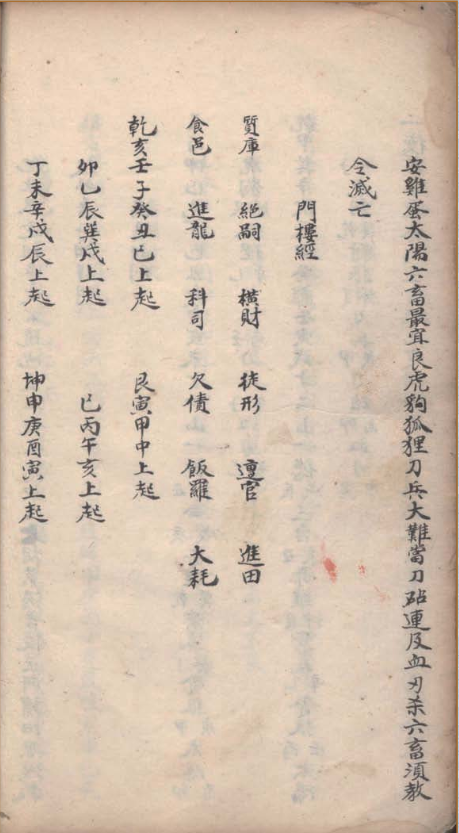 安雞蛋太陽六畜最宜良虎狗狐狸刀兵大難當刀砧連及血刃杀六畜須教
令滅亡
門樓經
質庫 絕嗣 橫財 徒形 遭官 進田
食邑 進龍 科司 欠債 飯羅 大耗
乾亥壬子癸丑巳上起 艮寅甲申上起
卯乙辰巽戌上起 巳丙午亥上起
丁未辛戌辰上起 坤申庚酉寅上起